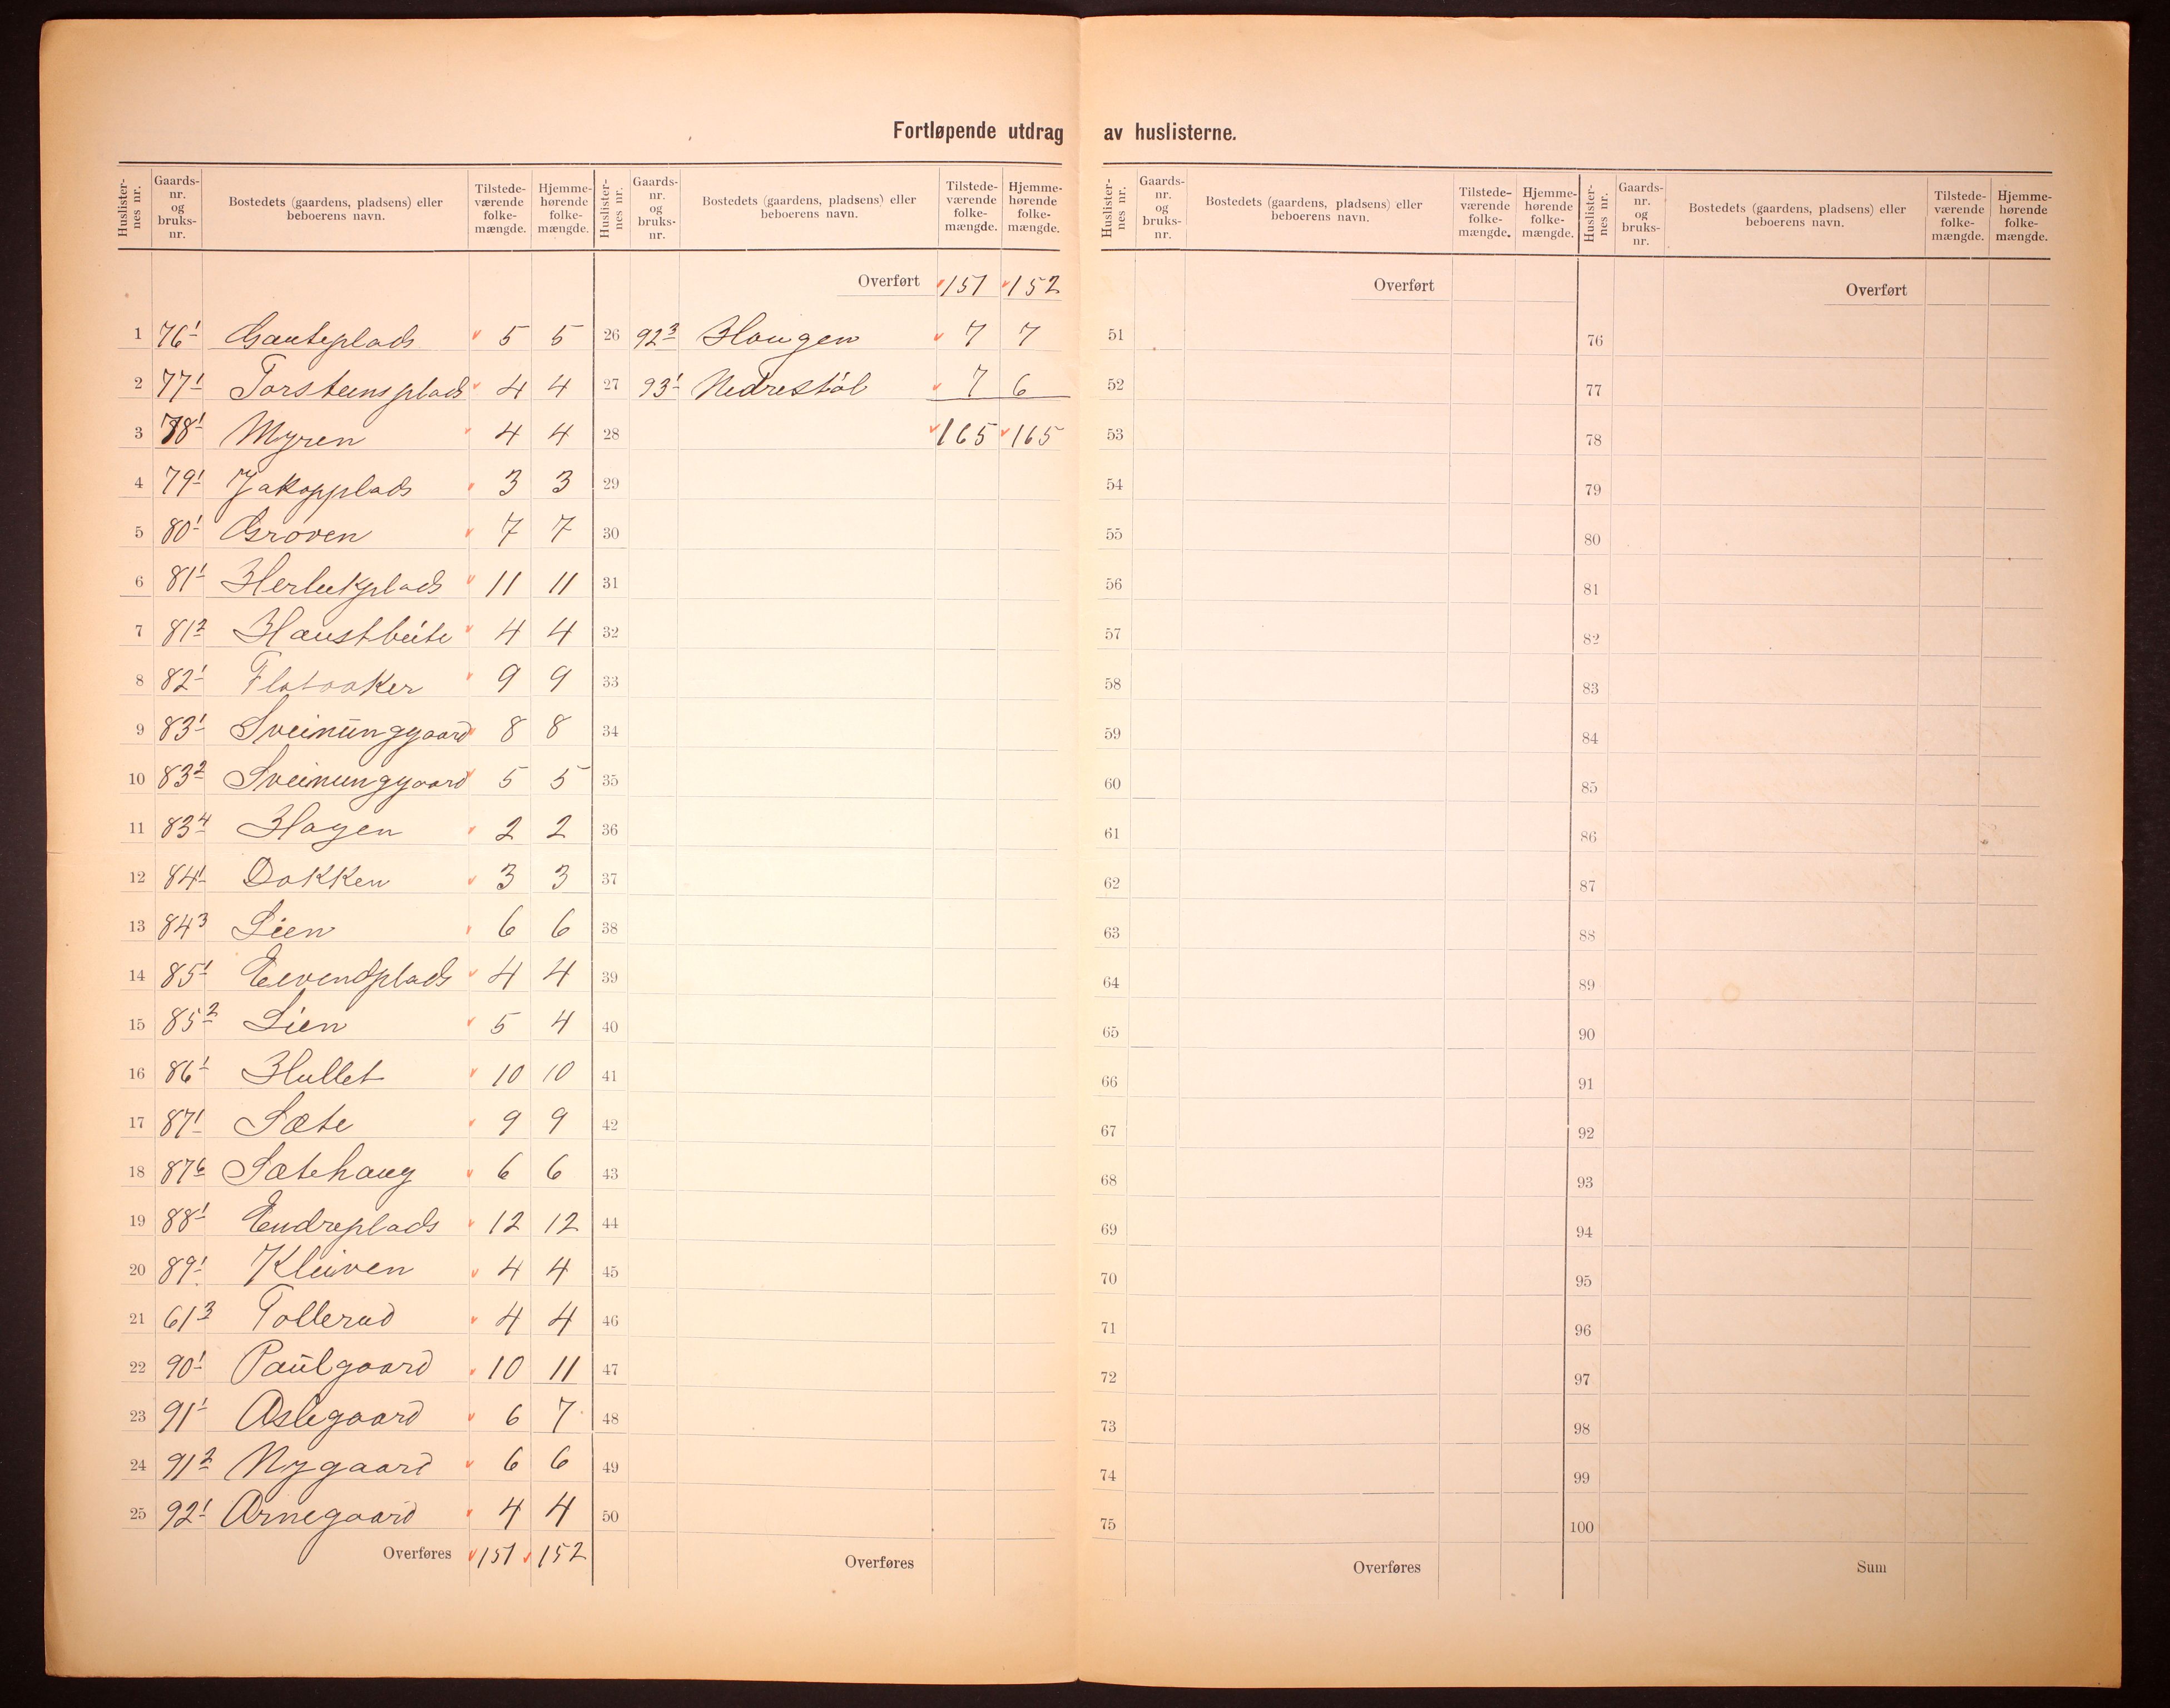 Fortløpende utdrag av huslisterne.
Huslister-nes nr. | Gaards-nr. og bruks-nr. | Bostedets (gaardens, pladsens) eller beboerens navn. | Tilstede-værende folke-mængde. | Hjemme-hørende folke-mængde.
1 76¹ Gauteplads 5 5
2 77¹ Torsteensplads 4 4
3 78¹ Myren 4 4
4 79¹ Jakopplads 3 3
5 80¹ Groven 7 7
6 81¹ Herleikplads 11 11
7 81² Haustbeite 4 4
8 82¹ Flataaker 9 9
9 83¹ Sveinunggaard 8 8
10 83² Sveinunggaard 5 5
11 83⁴ Hagen 2 2
12 84¹ Dokken 3 3
13 84³ Lien 6 6
14 85¹ Eivendplads 4 4
15 85² Lien 5 4
16 86¹ Hullet 10 10
17 87¹ Sæte 9 9
18 87⁶ Sætehaug 6 6
19 88¹ Endreplads 12 12
20 89¹ Kleiven 4 4
21 61³ Tollerud 4 4
22 90¹ Paulgaard 10 11
23 91¹ Aslegaard 6 7
24 91² Nygaard 6 6
25 92¹ Arnegaard 4 4
Overføres 151 152
Huslister-nes nr. | Gaards-nr. og bruks-nr. | Bostedets (gaardens, pladsens) eller beboerens navn. | Tilstede-værende folke-mængde. | Hjemme-hørende folke-mængde.
Overført 151 152
26 92³ Haugen 7 7
27 93¹ Nedrestøl 7 6
28 165 165
29
30
31
32
33
34
35
36
37
38
39
40
41
42
43
44
45
46
47
48
49
50
Overføres
Huslister-nes nr. | Gaards-nr. og bruks-nr. | Bostedets (gaardens, pladsens) eller beboerens navn. | Tilstede-værende folke-mængde. | Hjemme-hørende folke-mængde.
Overført
51
52
53
54
55
56
57
58
59
60
61
62
63
64
65
66
67
68
69
70
71
72
73
74
75
Overføres
Huslister-nes nr. | Gaards-nr. og bruks-nr. | Bostedets (gaardens, pladsens) eller beboerens navn. | Tilstede-værende folke-mængde. | Hjemme-hørende folke-mængde.
Overført
76
77
78
79
80
81
82
83
84
85
86
87
88
89
90
91
92
93
94
95
96
97
98
99
100
Sum